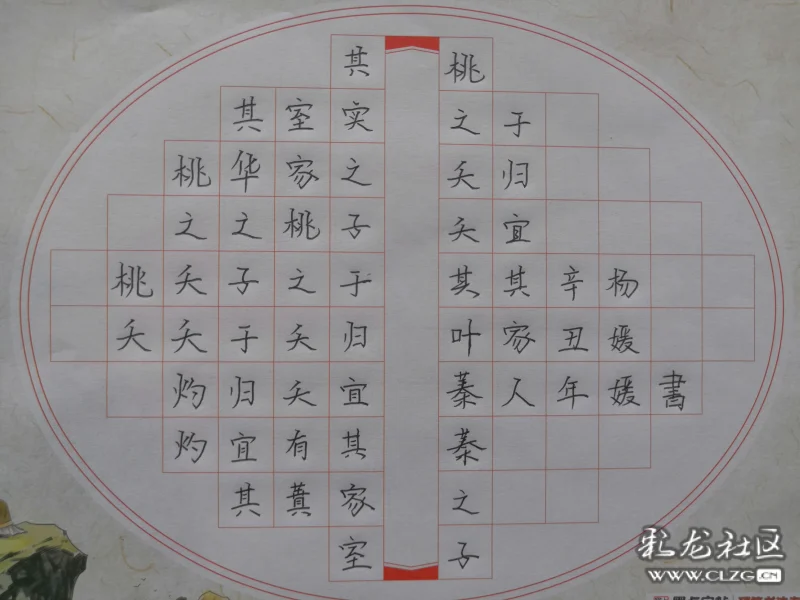 桃夭
桃之夭夭灼灼
其华之子于归宜其
室家桃之夭夭有蕡
其实之子于归宜其家室
桃之夭夭其叶蓁蓁之子
于归宜其家人
辛丑年
杨媛媛書
彩龙社区
WWW.CLZG.CN